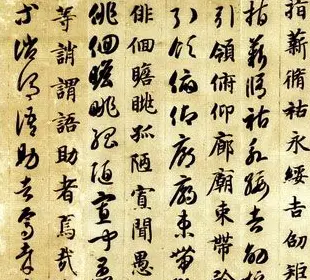 指薪脩祜永綏吉劭
指薪脩祜永綏吉劭
引領俯仰廊廟束帶矜
引領俯仰廊廟束帶
俳佪瞻眺孤陋寡聞愚
俳佪瞻眺孤陋寡聞愚
等誚謂語助者焉哉
等誚謂語助者焉哉